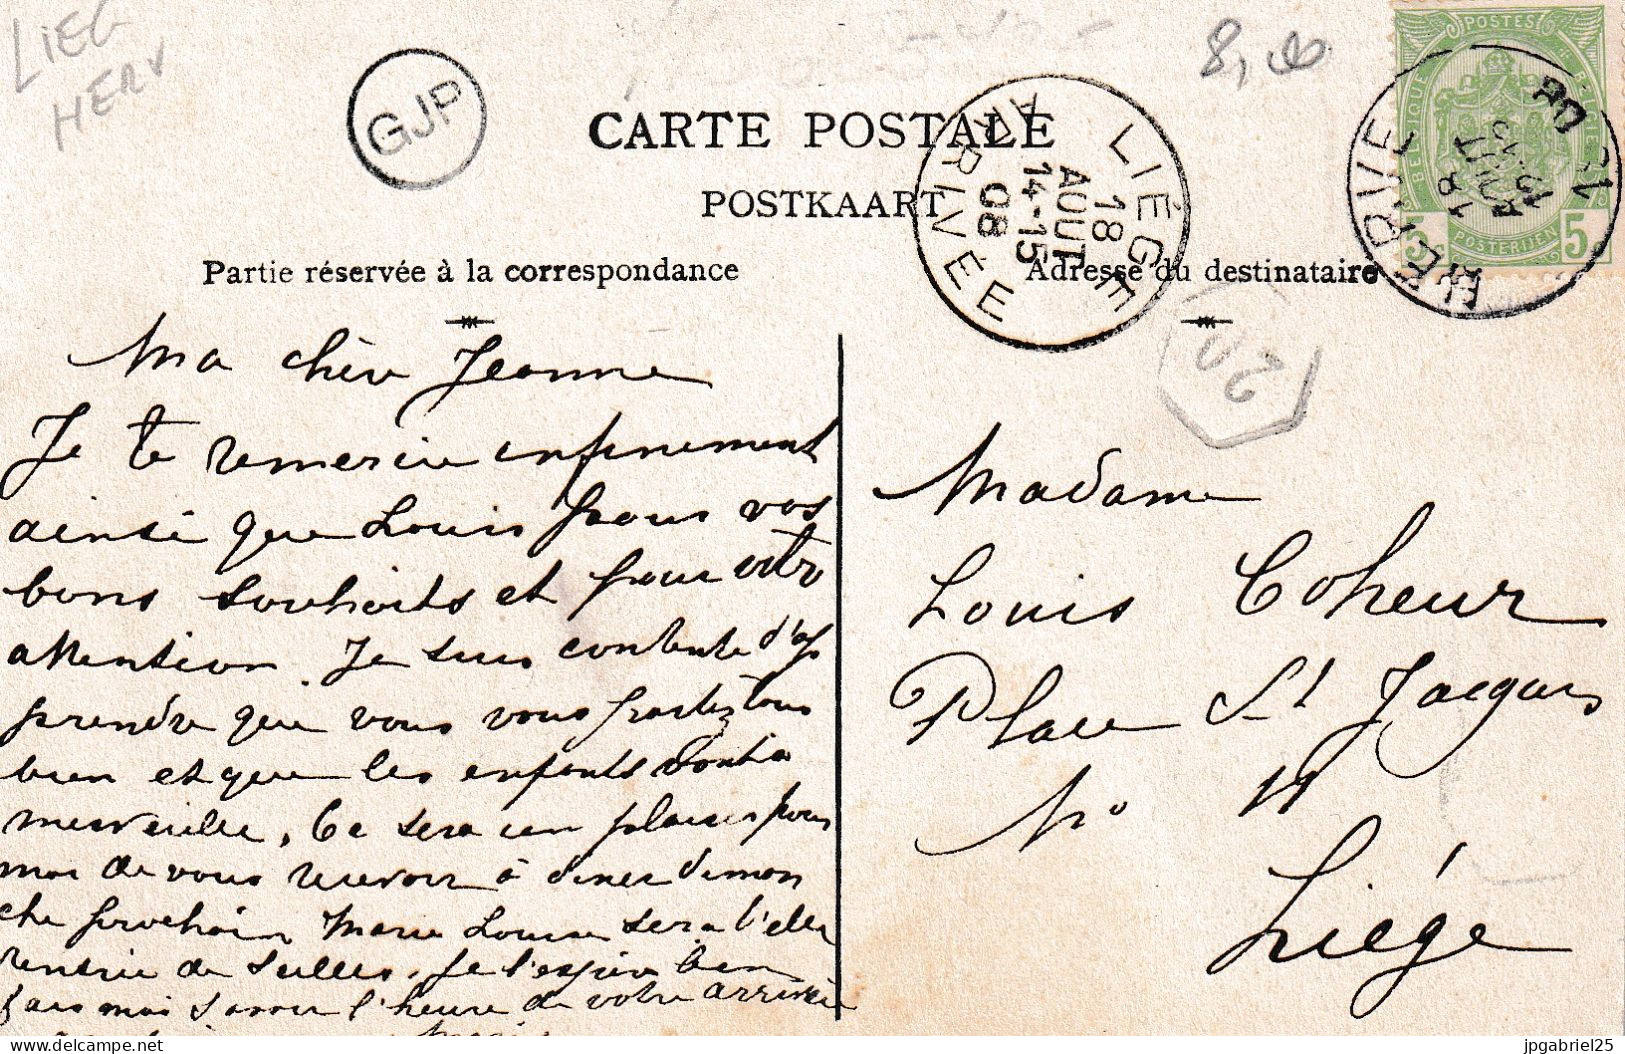 LIEG
HERV
GJP
8,00
POSTES
BELGIQUE
BELGIE
5
5
POSTERIJEN
HERVE
18
AOUT
08
CARTE POSTALE
POSTKAART
LIÉGE
18
AOUT
14-15
08
ARRIVÉE
Partie réservée à la correspondance
Adresse du destinataire
Ma chère Jeanne
Je te remercie infiniment
ainsi que Louis pour vos
bons souhaits et pour votre
attention. Je suis contente d'ap
prendre que vous vous portez tous
bien et que les enfants vont à
merveille. Ce sera un plaisir pour
moi de vous recevoir à diner diman
che prochain Marie Louise sera t'elle
rentrée de Seilles. Je l'espère bien
fais moi savoir l'heure de votre arrivée
Madame
Louis Coheur
Place St Jacques
No 11
Liége
jpgabriel25